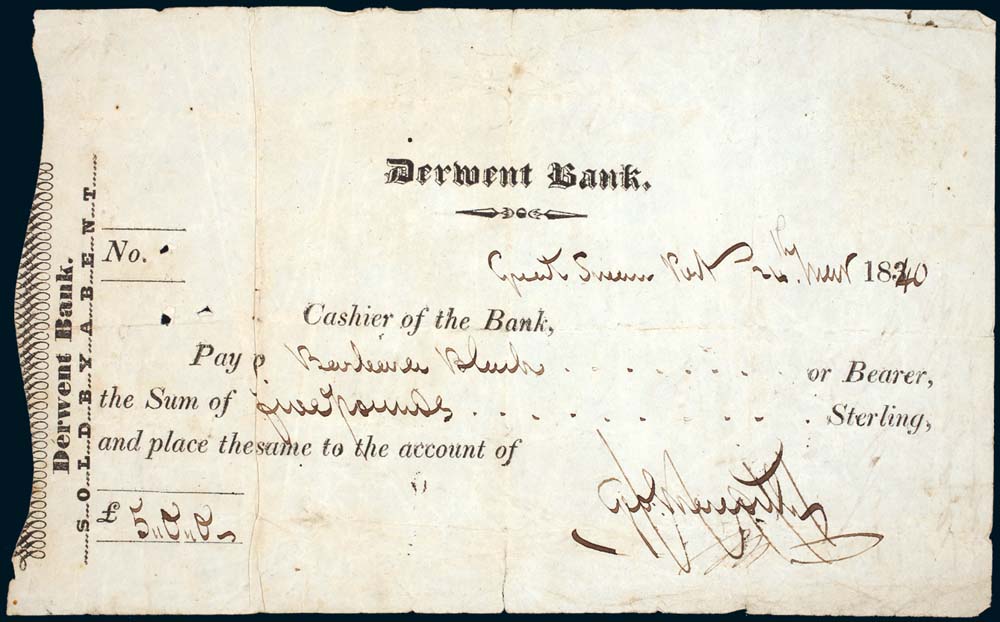 Derwent Bank.
S...O...L...D...B...Y...A...B...E...N...T
Derwent Bank.
Great Swan Port 24th Mar 1840
No.
Cashier of the Bank,
Pay Barbara Black or Bearer,
the Sum of five pounds Sterling,
and place the same to the account of
Geo. Meredith
£ 5 " 0 " 0